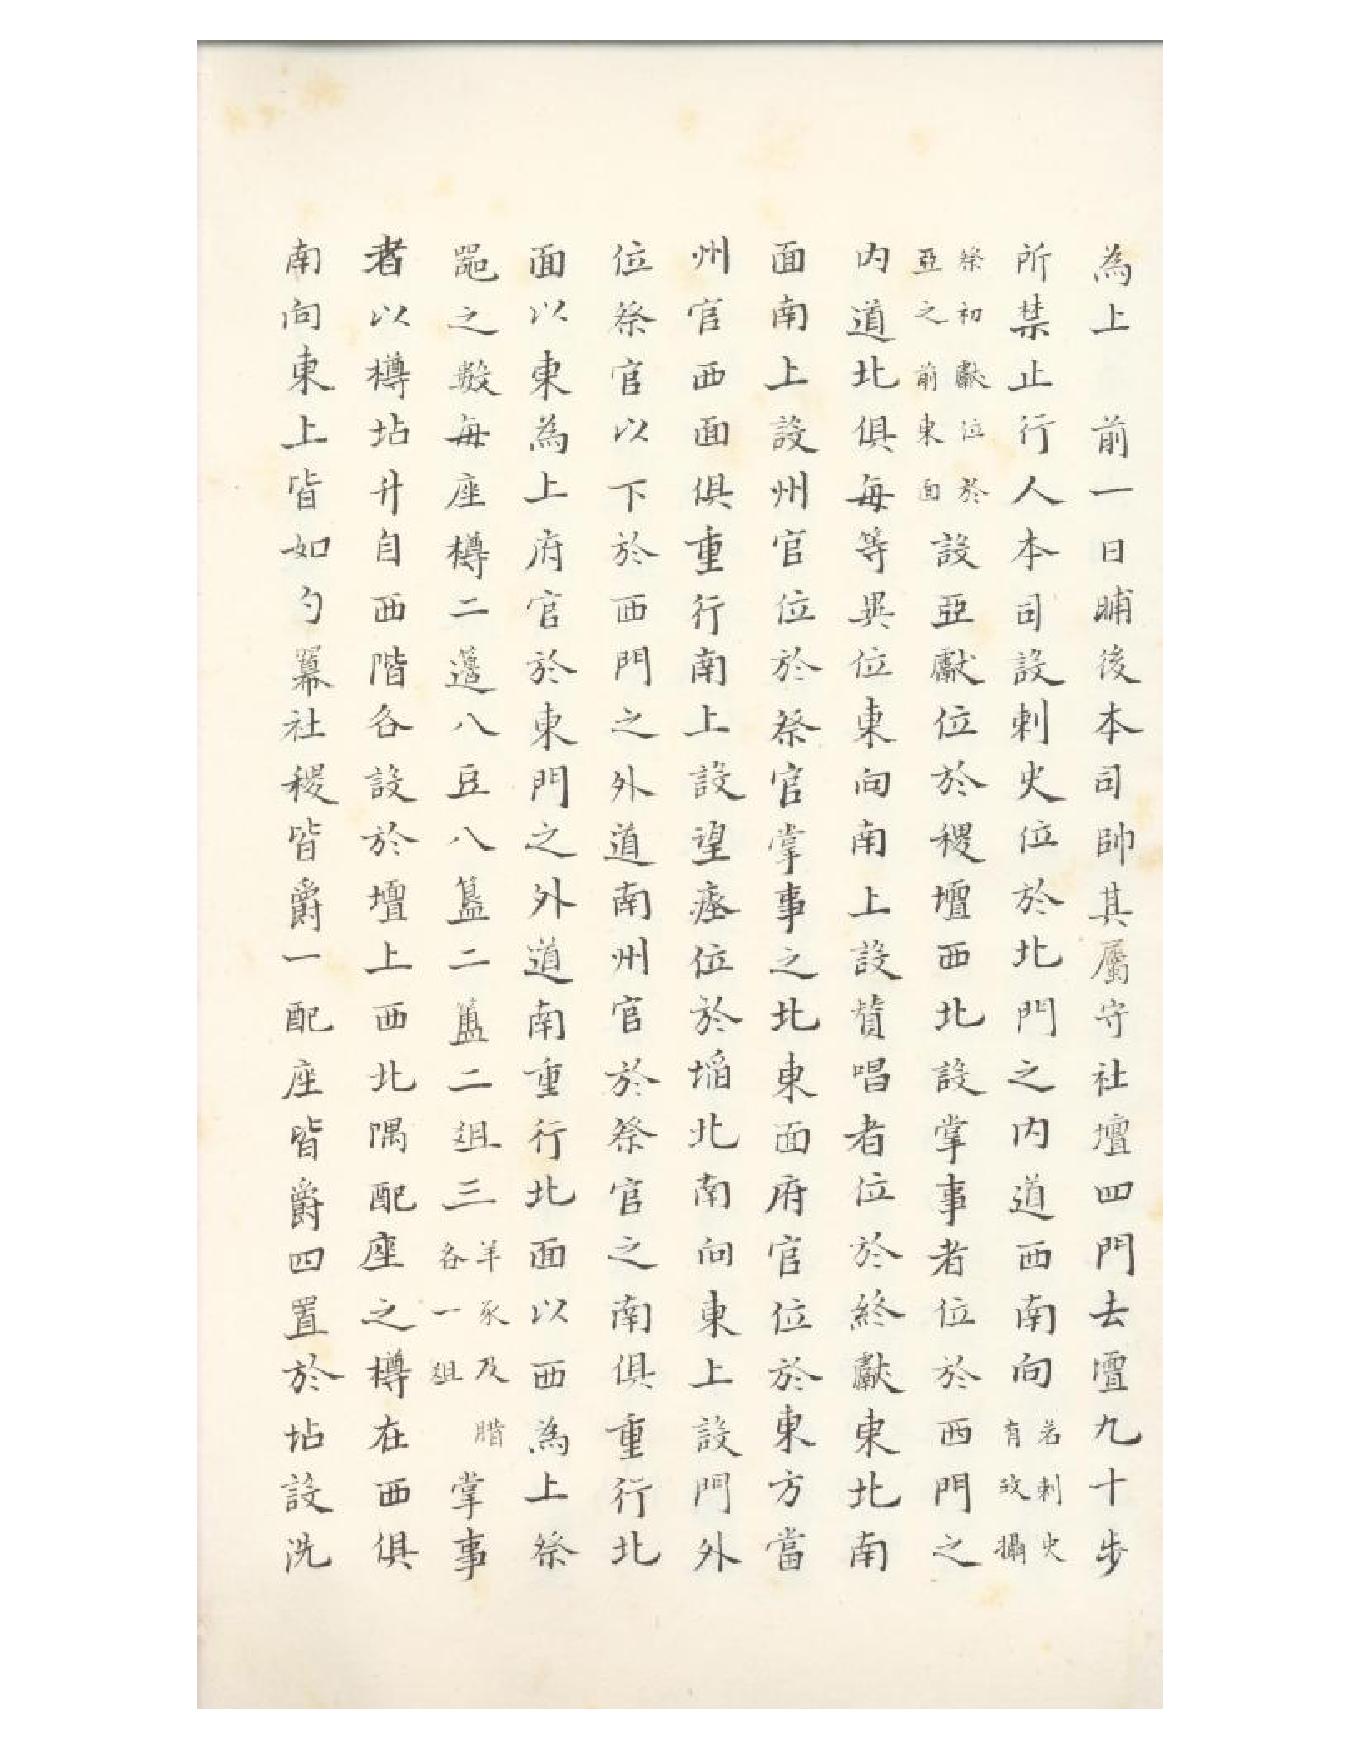 為上　前一日晡後本司帥其屬守社壇四門去壇九十步
所禁止行人本司設刺史位於北門之内道西南向若刺史有故攝
祭初獻位於亞之前東面設亞獻位於稷壇西北設掌事者位於西門之
内道北俱每等異位東向南上設賛唱者位於終獻東北南
面南上設州官位於祭官掌事之北東面府官位於東方當
州官西面俱重行南上設望瘞位於堛北南向東上設門外
位祭官以下於西門之外道南州官於祭官之南俱重行北
面以東為上府官於東門之外道南重行北面以西為上祭
噐之數每座樽二籩八豆八簋二簠二俎三羊豕及腊各一俎掌事
者以樽坫升自西階各設於壇上西北隅配座之樽在西俱
南向東上皆如勺羃社稷皆爵一配座皆爵四置於坫設洗